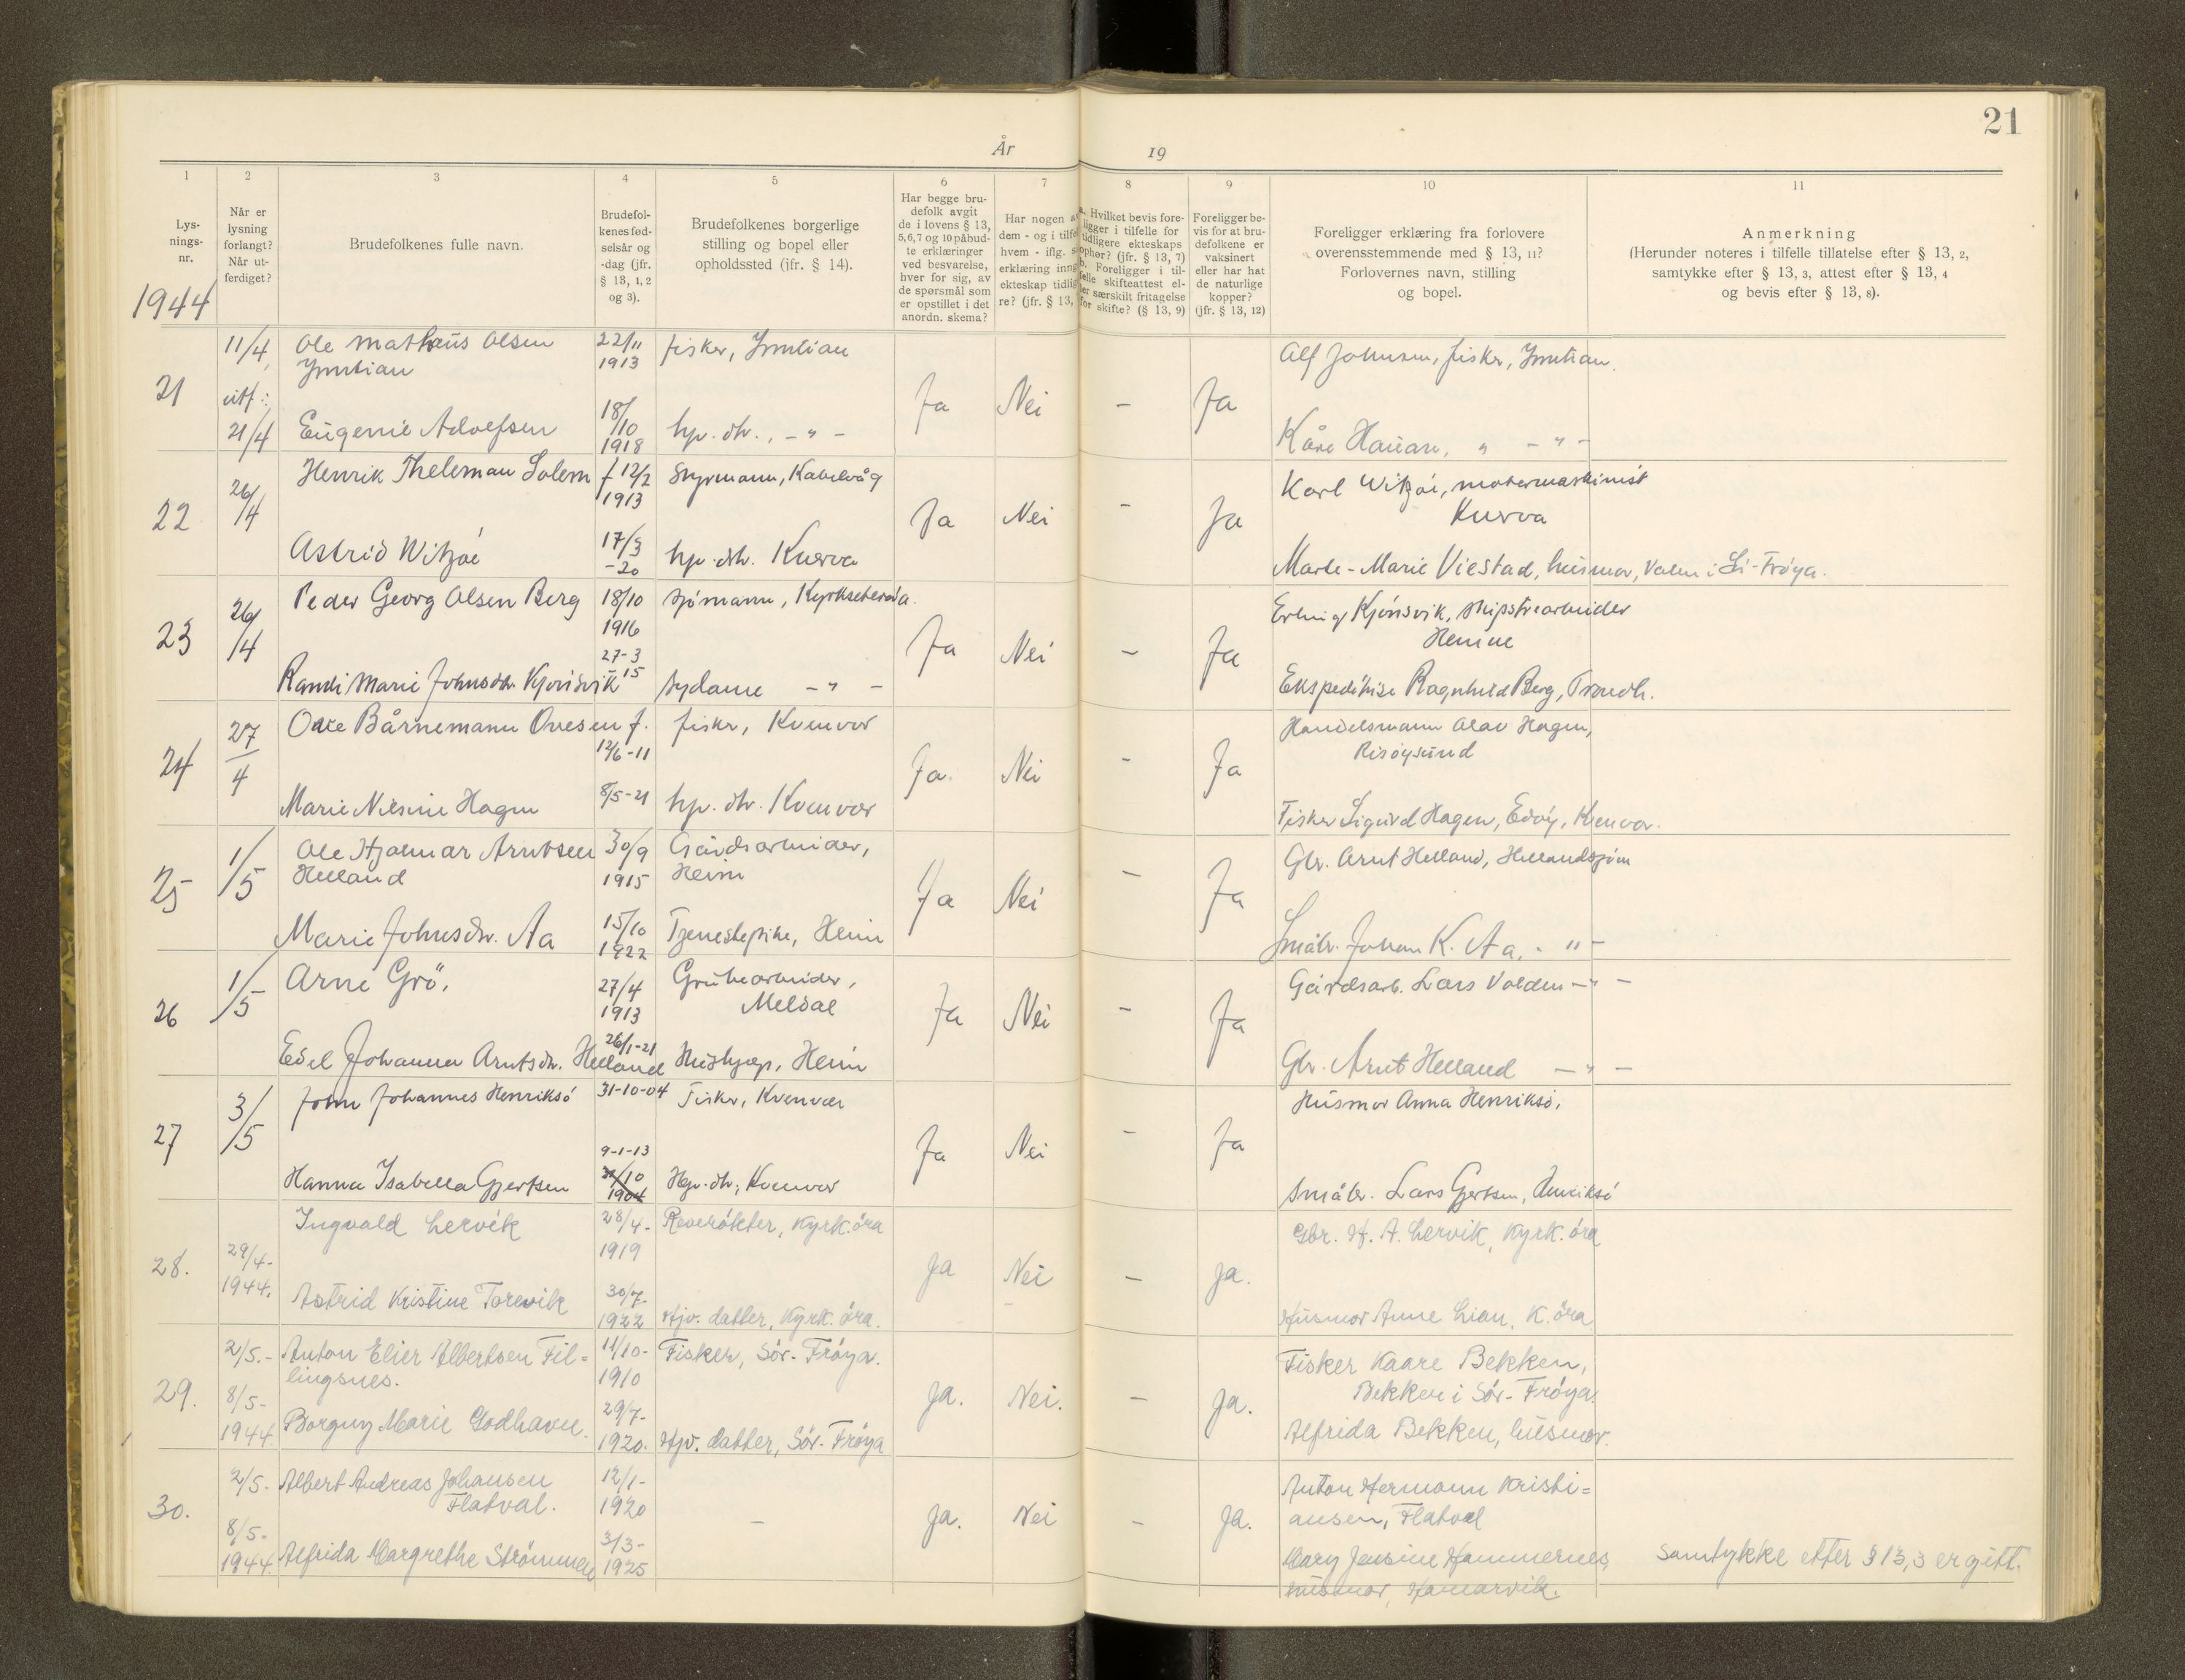 21
År 19
1
2
3
4
5
6
7
8
9
10
11
Lys-
nings-
nr.
Når er
lysning
forlangt?
Når ut-
ferdiget?
Brudefolkenes fulle navn.
Brudefol-
kenes fød-
selsår og
-dag (jfr.
§ 13, 1, 2
og 3).
Brudefolkenes borgerlige
stilling og bopel eller
opholdssted (jfr. § 14).
Har begge bru-
defolk avgit
de i lovens § 13,
5, 6, 7 og 10 påbud-
te erklæringer
ved besvarelse,
hver for sig, av
de spørsmål som
er opstillet i det
anordn. skema?
Har nogen a
dem - og i tilfe
hvem - iflg. s
erklæring inng
ekteskap tidlig
re? (jfr. § 13,
a. Hvilket bevis fore-
ligger i tilfelle for
tidligere ekteskaps
ophør? (jfr. § 13, 7)
b. Foreligger i til-
felle skifteattest el-
ler særskilt fritagelse
for skifte? (§ 13, 9)
Foreligger be-
vis for at bru-
defolkene er
vaksinert
eller har hat
de naturlige
kopper?
(jfr. § 13, 12)
Foreligger erklæring fra forlovere
overensstemmende med § 13, 11?
Forlovernes navn, stilling
og bopel.
Anmerkning
(Herunder noteres i tilfelle tillatelse efter § 13, 2,
samtykke efter § 13, 3, attest efter § 13, 4
og bevis efter § 13, 8).
1944
21
11/4,
utf.:
21/4
Ole Matheus Olsen
Eugenie Adolfsen
22/11
1913
18/10
1918
fisker,
hp. dtr., - " -
Ja
Nei
-
Ja
Alf Johnsen, fisker,
Kåre Hauan, " - " -
22
26/4
Henrik Theleman Solem
Astrid Witzøe
f 12/2
1913
17/3
-20
Styrmann, Kabelvåg
hp. dtr. Kuerva
Ja
Nei
-
Ja
Karl Witzøe, motormaskinist
Kuerva
Marle-Marie Viestad, husmor, Valen i S-Frøya.
23
26/4
Peder Georg Olsen Berg
Randi Marie Johnsdtr. Kjønsvik
18/10
1916
27-3
15
sjømann, Kyrksæterøra
sydame - " -
Ja
Nei
-
Ja
Erling Kjønsvik, skipstrearbeider
Hemne
Ekspeditrise Ragnhild Berg, Trondh.
24
27/4
Ove Bårnemann Ovesen f.
Marie Nilsine Hagen
12/6-11
8/5-21
fisker, Kvenvær
hp. dtr. Kvenvær
Ja.
Nei
-
Ja
Handelsmann Olav Hagen,
Risøysund
Fisker Sigurd Hagen, Edøy, Kvenvær.
25
1/5
Ole Hjalmar Arntsen
Helland
Marie Johnsdtr. Aa
30/9
1915
15/10
1922
Gårdsarbeider,
Heim
Tjenestepike, Heim
Ja
Nei
-
Ja
Gbr. Arnt Helland, Hellandsjøen
Småbr. Johan K. Aa, - " -
26
1/5
Arne Grö,
Edel Johanna Arntsdtr. Helland
27/4
1913
26/1-21
Grubearbeider,
Meldal
Hushjelp, Heim
Ja
Nei
-
Ja
Gårdsarb. Lars Valden - " -
Gbr. Arnt Helland - " -
27
3/5
John Johannes Henriksø
Hanna Isabella Gjertsen
31-10-04
9-1-13
31/10
1904
Fisker, Kvenvær
Hp. dtr., Kvenvær
Ja
Nei
-
Ja
Husmor Anna Henriksø,
Småbr. Lars Gjertsen, Henriksø
28.
29/4-
1944.
Ingvald Lervik
Astrid Kristine Torevik
28/4-
1919
30/7-
1922
Reverøkter, Kyrk.øra
Hjv. datter, Kyrk. øra.
Ja
Nei
-
Ja.
Gbr. H. A. Lervik, Kyrk. øra
Husmor Anne Lian, K. øra
29.
2/5.-
8/5-
1944.
Anton Elier Albertsen Fil=
lingsnes.
Borguny Marie Godhavn.
11/10-
1910
29/7-
1920.
Fisker, Sør-Frøya.
Hjv. datter, Sør-Frøya
Ja.
Nei.
-
Ja.
Fisker Kaare Bekken,
Bekken i Sør-Frøya.
Alfrida Bekken, husmor.
30.
2/5-
8/5-
1944.
Albert Andreas Johansen
Flatval.
Alfrida Margrethe Strömmen
12/1-
1920
3/3-
1925
-
Ja.
Nei
-
Ja.
Anton Hermann Kristi=
ansen, Flatval
Mary Jensine Hammernes,
husmor, Hamarvik.
Samtykke etter § 13,3 er gitt.